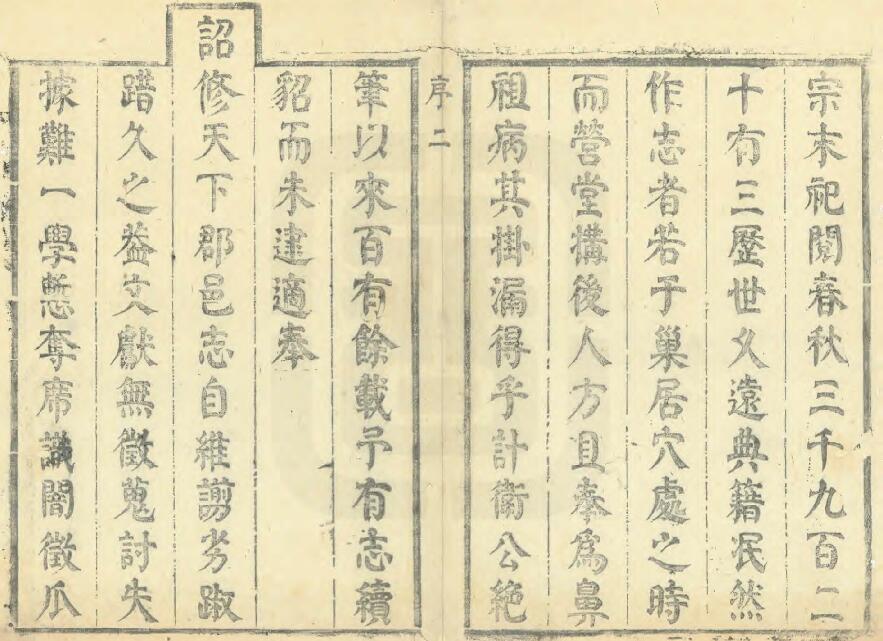 宗末祀閱春秋三千九百二
十有三歷世久遠典籍泯然
作志者若于巢居穴處之時
而營堂搆後人方且奉爲鼻
祖病其掛漏得乎計衛公絶
序二
筆以來百有餘載予有志續
貂而未逮適奉
詔修天下郡邑志自維謭劣踧
踖久之葢文獻無徵蒐討失
據難一學慙奪席識闇徵爪